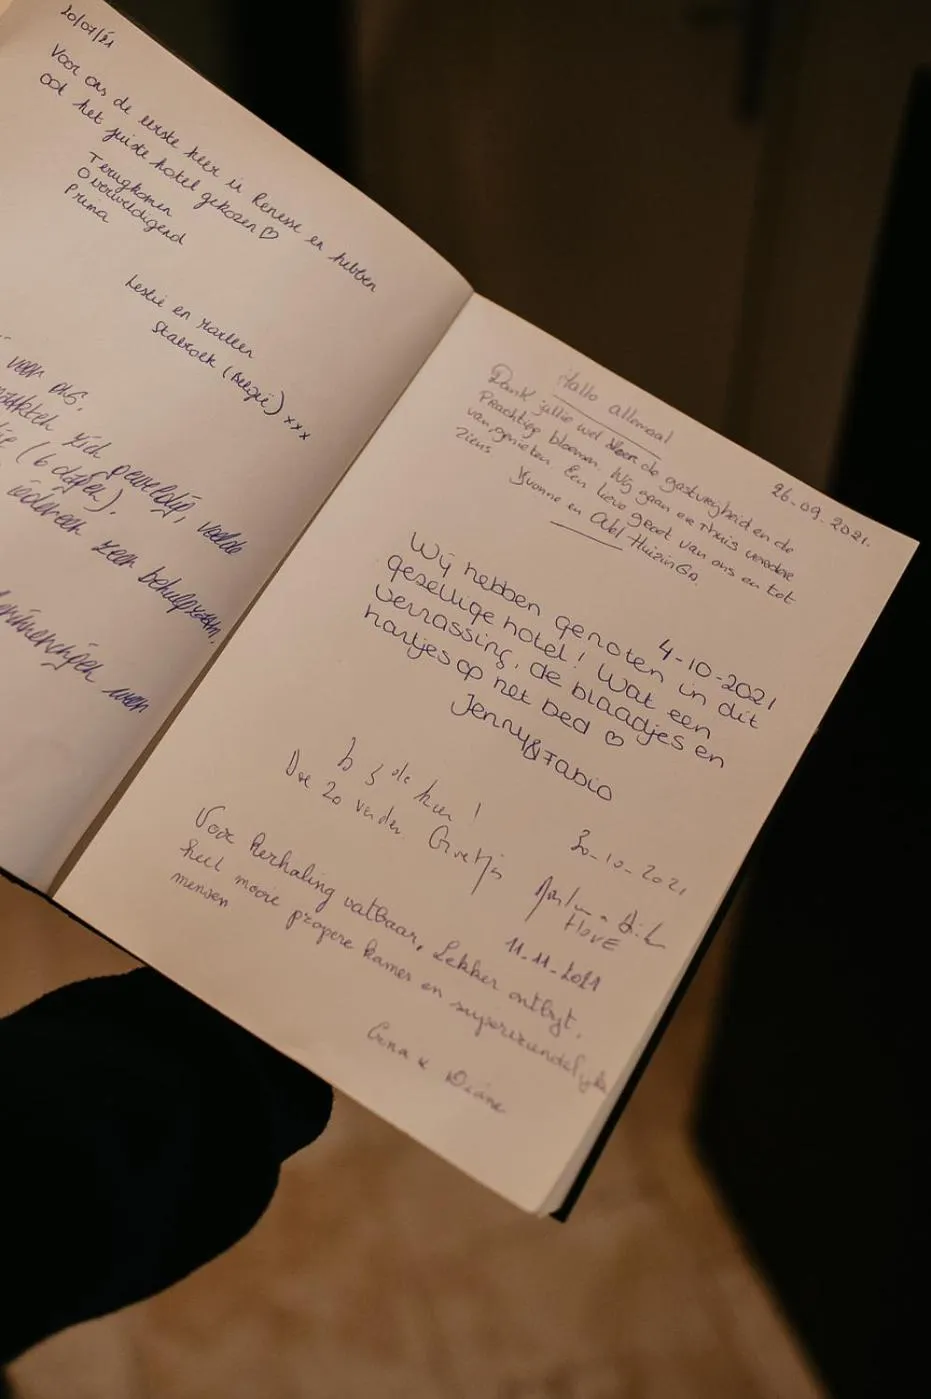 20/07/21
Voor ons de eerste keer in Renesse en hebben
ook het juiste hotel gekozen ♡
Terugkomen
Overweldigend
Prima
Leslie en Marleen
Stabroek (België) xxx
voor ons.
zich geweldig, voelde
(6 dagen).
iedereen zeer behulpzaam.
Hallo allemaal
26-09-2021.
Dank jullie wel voor de gastvrijheid en de
Prachtige bloemen. Wij gaan er Thuis verder
van genieten. Een lieve groet van ons en tot
ziens
Yvonne en Abel Huizinga.
4-10-2021
Wij hebben genoten in dit
gezellige hotel! Wat een
verrassing, de blaadjes en
hartjes op het bed ♡
Jenny & Fabio
30-10-2021
de keer!
Doe zo verder. Groetjes
HOVE
11-11-2021
Voor herhaling vatbaar, Lekker ontbijt,
heel mooie propere kamer en supervriendelijke
mensen
Gina & Diane